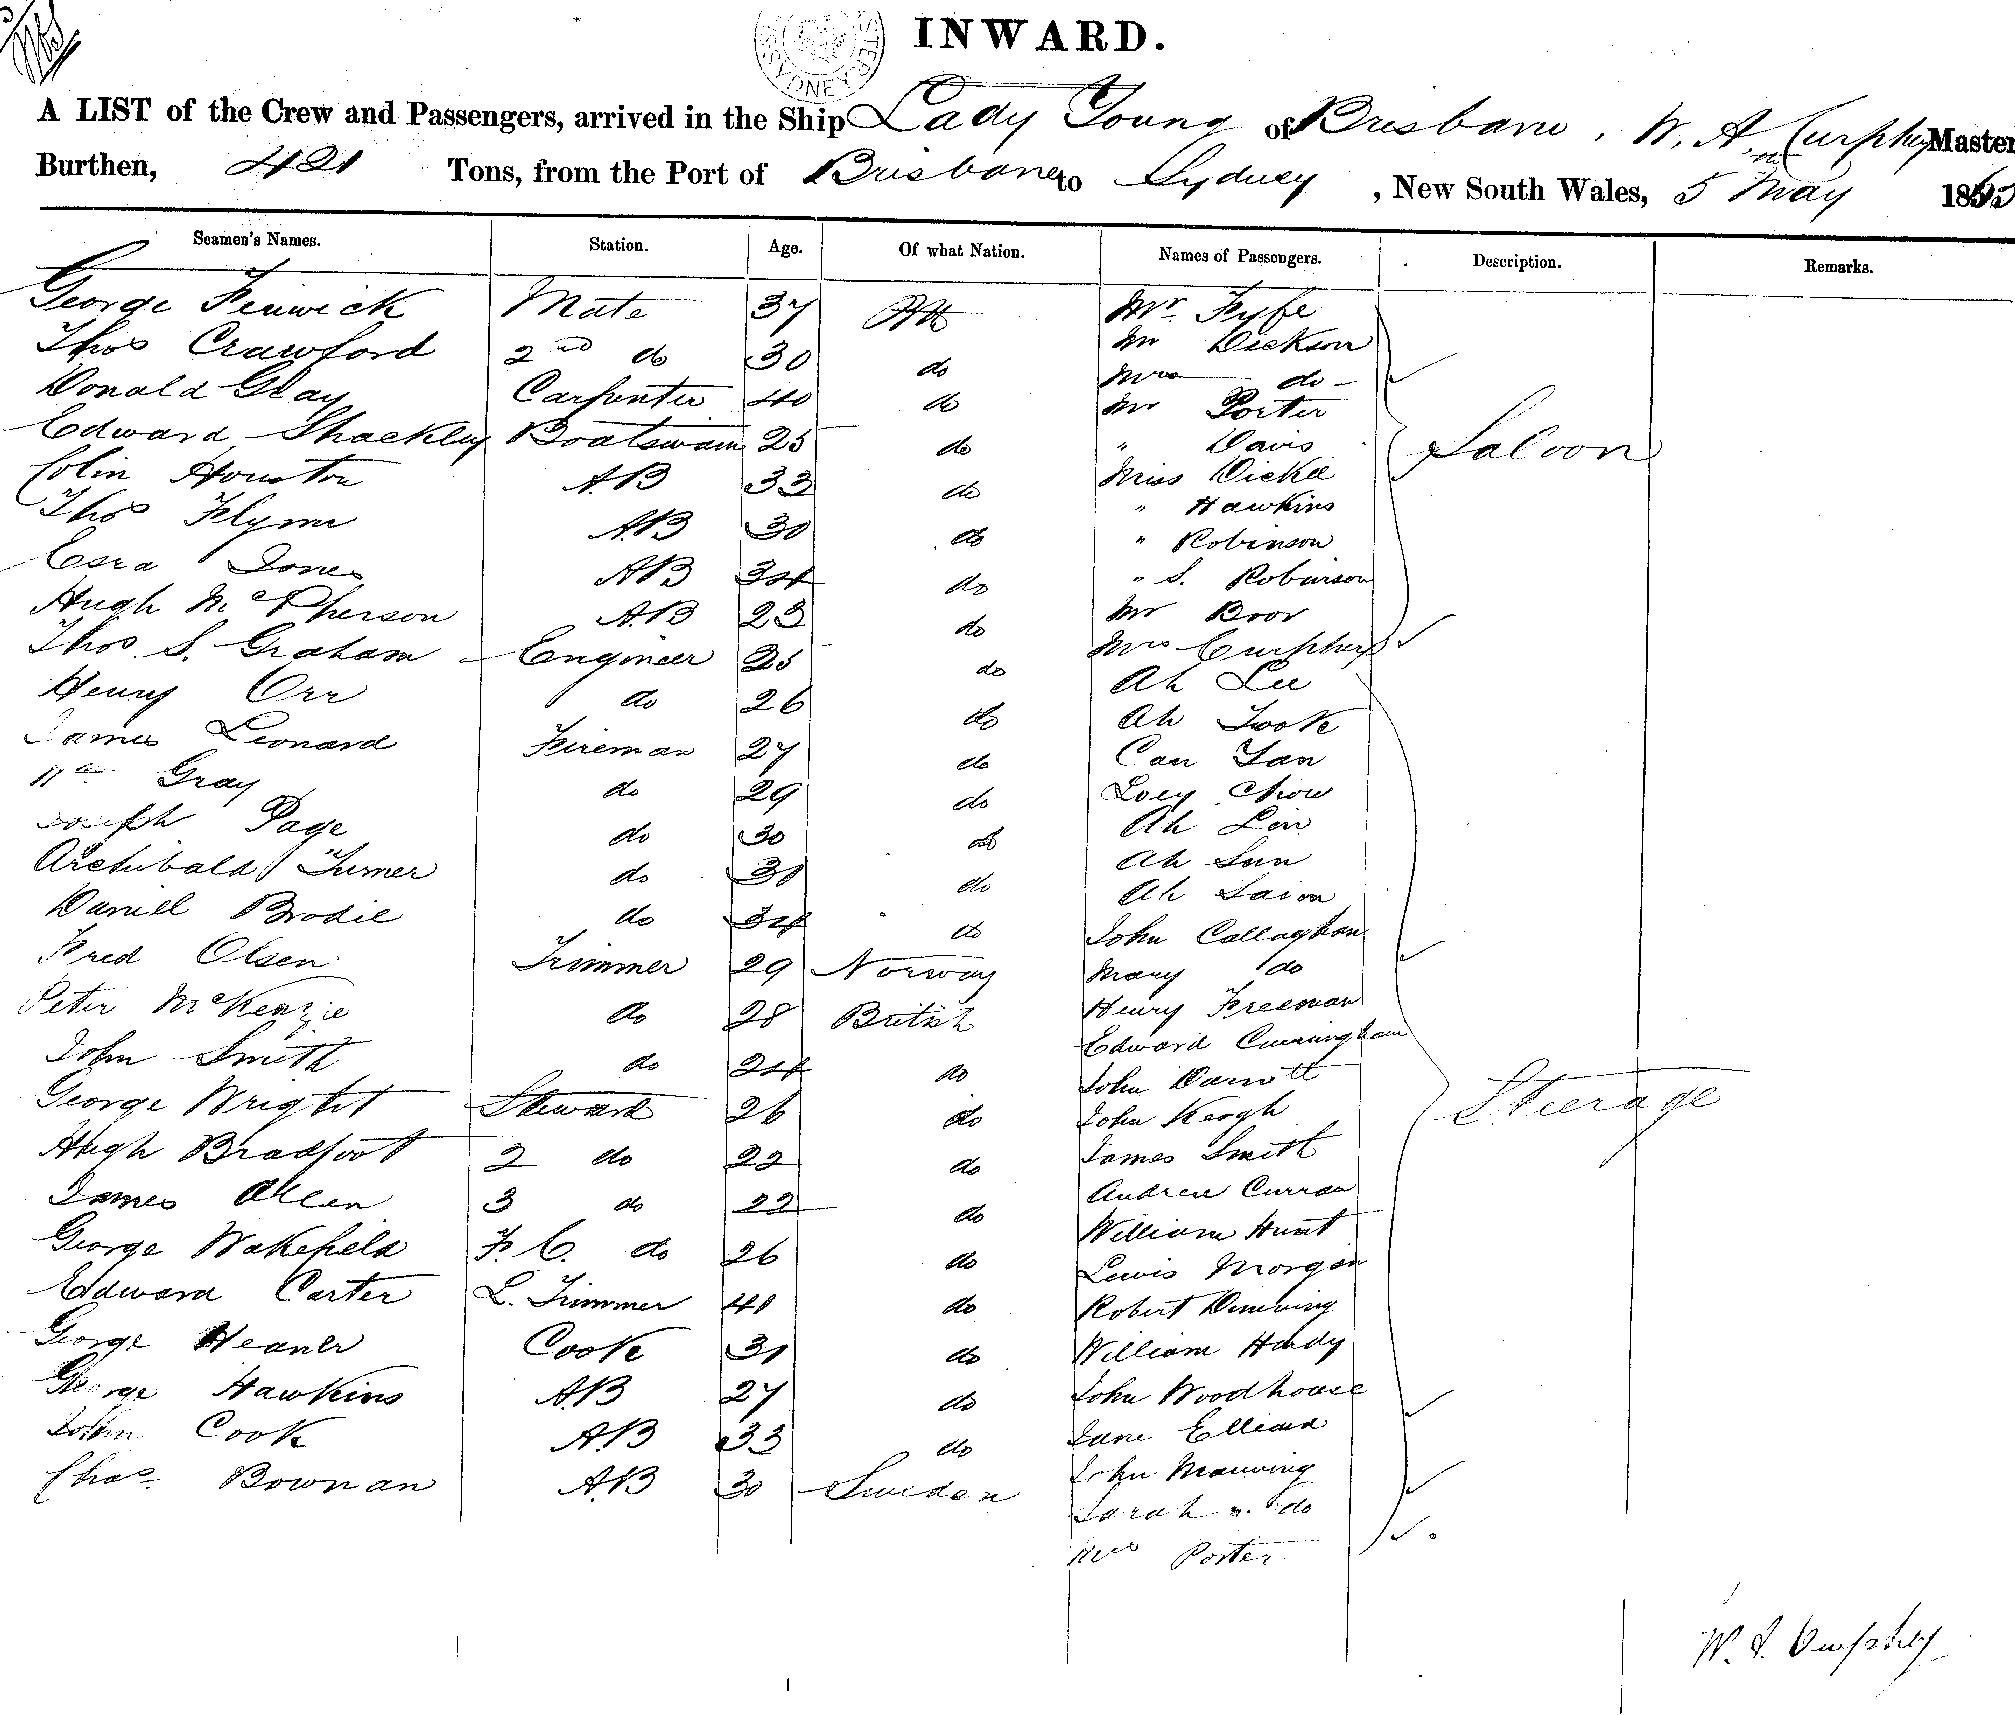 INWARD.
SYDNEY
A LIST of the Crew and Passengers, arrived in the Ship Lady Young of Brisbane, W. A. Curphey Master
Burthen, 421 Tons, from the Port of Brisbane to Sydney, New South Wales, 5 May 186
Seamen's Names. Station. Age. Of what Nation. Names of Passengers. Description. Remarks.
George Fenwick Mate 37 Mr. Fyfe
Thos Crawford 2nd do 30 do Mr Dickson
Donald Gray Carpenter 40 do Mrs do
Edward Shackley Boatswain 25 do Mr Porter
Colin Houston A.B 33 do " Davis Saloon
Thos Flynn A.B 30 do Miss Dickie
Esra Jones A.B 34 do " Hawkins
Hugh McPherson A.B 23 do " Robinson
Thos. S. Graham Engineer 25 do " S. Robinson
Henry Orr do 26 do Mr Boor
James Leonard Fireman 27 do Mrs Curphey
Wm Gray do 29 do Ah Lee
Joseph Page do 30 do Ah Took
Archibald Turner do 30 do Can Tan
Daniel Brodie do 34 do Loey Chow
Fred Olsen Trimmer 29 Norway Ah Lin
Peter McKenzie do 28 British Ah Sun
John Smith do 24 do Ah
George Wright Steward 26 do John Callaghan
Hugh Bradfoot 2 do 22 do Mary do
James Allen 3 do 22 do Henry Freeman
George Wakefield F. C. do 26 do Edward Cunningham
Edward Carter L. Trimmer 40 do John
George Heaner Cook 31 do John Keogh Steerage
George Hawkins A.B 27 do James Smith
John Cook A.B 33 do Andrew Curran
Chas. Bowman A.B 30 Sweden William Hunt
Lewis Morgan
Robert
William Hardy
John Woodhouse
Jane
John Manning
Sarah do
Mrs Porter
W. Curphey